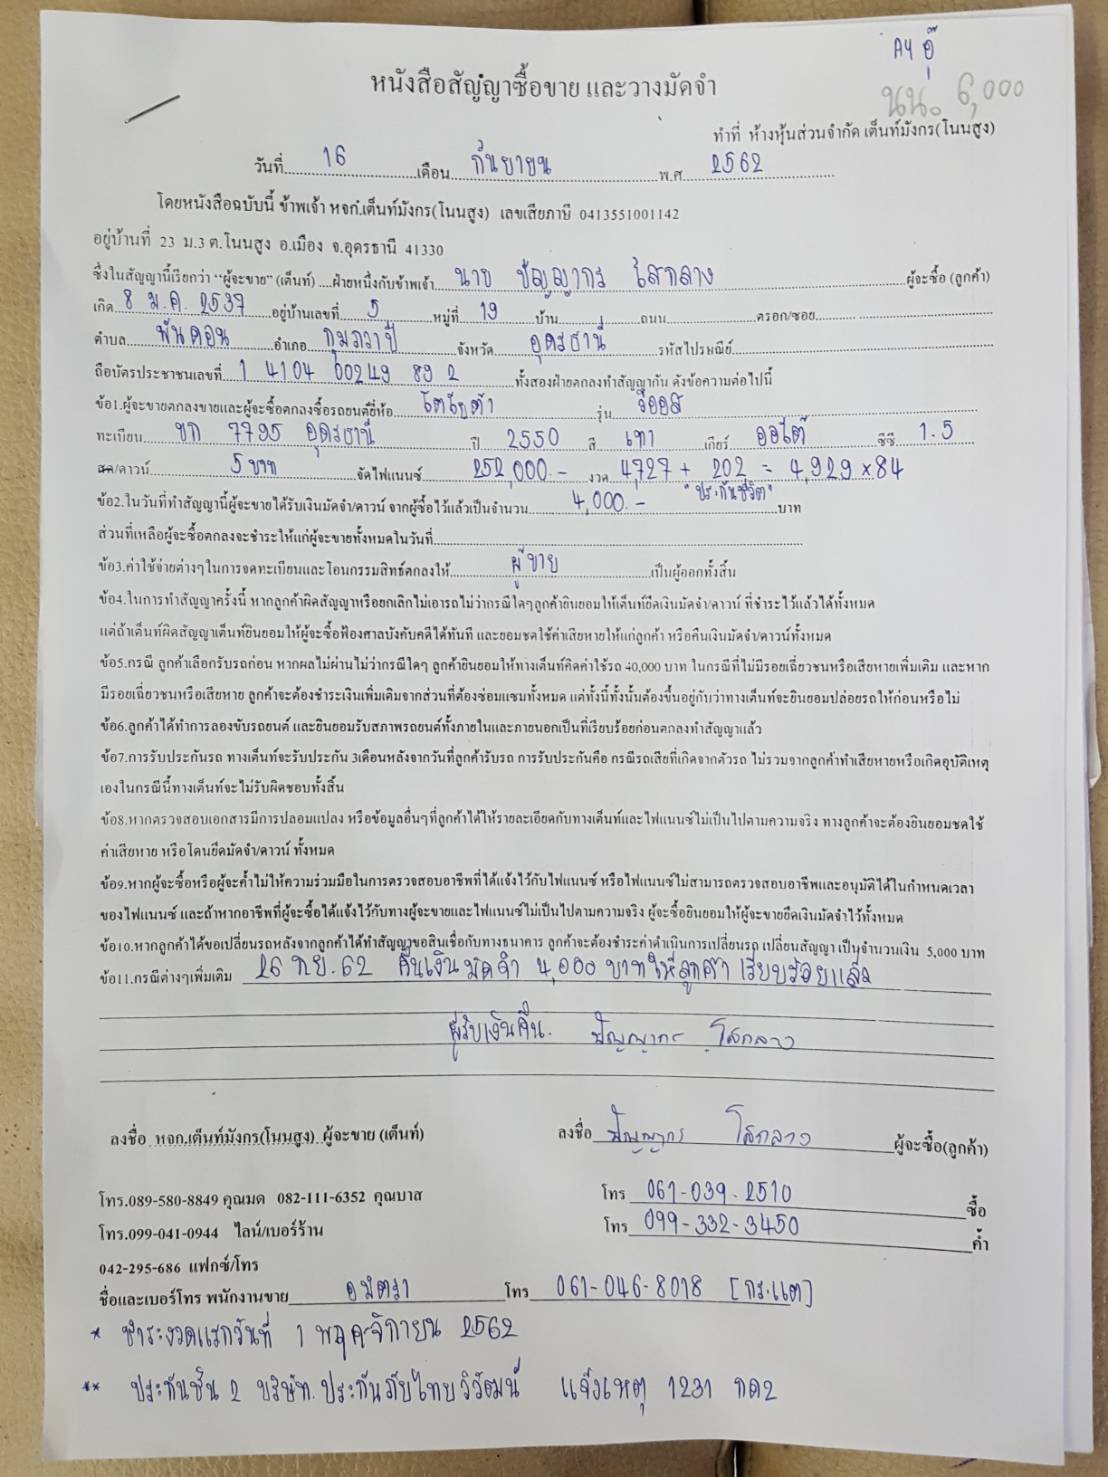 A4 อู๊
นน. 6,000
หนังสือสัญญาซื้อขาย และวางมัดจำ
ทำที่ ห้างหุ้นส่วนจำกัด เต็นท์มังกร(โนนสูง)
วันที่ 16 เดือน กันยายน พ.ศ. 2562
โดยหนังสือฉบับนี้ ข้าพเจ้า หจก.เต็นท์มังกร(โนนสูง) เลขเสียภาษี 0413551001142
อยู่บ้านที่ 23 ม.3 ต.โนนสูง อ.เมือง จ.อุดรธานี 41330
ซึ่งในสัญญานี้เรียกว่า “ผู้จะขาย” (เต็นท์) ....ฝ่ายหนึ่งกับข้าพเจ้า นาย ปัญญากร โสกลาง ผู้จะซื้อ (ลูกค้า)
เกิด 8 ม.ค. 2537 อยู่บ้านเลขที่ 5 หมู่ที่ 19 บ้าน ถนน ตรอก/ซอย
ตำบล พันดอน อำเภอ กุมภวาปี จังหวัด อุดรธานี รหัสไปรษณีย์
ถือบัตรประชาชนเลขที่ 1 4104 00249 89 2 ทั้งสองฝ่ายตกลงทำสัญญากัน ดังข้อความต่อไปนี้
ข้อ1.ผู้จะขายตกลงขายและผู้จะซื้อตกลงซื้อรถยนต์ยี่ห้อ โตโยต้า รุ่น วีออส
ทะเบียน ขก 7795 อุดรธานี ปี 2550 สี เทา เกียร์ ออโต้ ซีซี 1.5
สด/ดาวน์ 5 บาท จัดไฟแนนซ์ 252,000.- งวด 4,727 + 202 = 4,929 x 84
"ประกันชีวิต"
ข้อ2.ในวันที่ทำสัญญานี้ผู้จะขายได้รับเงินมัดจำ/ดาวน์ จากผู้ซื้อไว้แล้วเป็นจำนวน 4,000.- บาท
ส่วนที่เหลือผู้จะซื้อตกลงจะชำระให้แก่ผู้จะขายทั้งหมดในวันที่
ข้อ3.ค่าใช้จ่ายต่างๆในการจดทะเบียนและโอนกรรมสิทธิ์ตกลงให้ ผู้ขาย เป็นผู้ออกทั้งสิ้น
ข้อ4.ในการทำสัญญาครั้งนี้ หากลูกค้าผิดสัญญาหรือยกเลิกไม่เอารถไม่ว่ากรณีใดๆลูกค้ายินยอมให้เต็นท์ยึดเงินมัดจำ/ดาวน์ ที่ชำระไว้แล้วได้ทั้งหมด
แต่ถ้าเต็นท์ผิดสัญญาเต็นท์ยินยอมให้ผู้จะซื้อฟ้องศาลบังคับคดีได้ทันที และยอมชดใช้ค่าเสียหายให้แก่ลูกค้า หรือคืนเงินมัดจำ/ดาวน์ทั้งหมด
ข้อ5.กรณี ลูกค้าเลือกรับรถก่อน หากผลไม่ผ่านไม่ว่ากรณีใดๆ ลูกค้ายินยอมให้ทางเต็นท์คิดค่าใช้รถ 40,000 บาท ในกรณีที่ไม่มีรอยเฉี่ยวชนหรือเสียหายเพิ่มเติม และหาก
มีรอยเฉี่ยวชนหรือเสียหาย ลูกค้าจะต้องชำระเงินเพิ่มเติมจากส่วนที่ต้องซ่อมแซมทั้งหมด แต่ทั้งนี้ทั้งนั้นต้องขึ้นอยู่กับว่าทางเต็นท์จะยินยอมปล่อยรถให้ก่อนหรือไม่
ข้อ6.ลูกค้าได้ทำการลองขับรถยนต์ และยินยอมรับสภาพรถยนต์ทั้งภายในและภายนอกเป็นที่เรียบร้อยก่อนตกลงทำสัญญาแล้ว
ข้อ7.การรับประกันรถ ทางเต็นท์จะรับประกัน 3เดือนหลังจากวันที่ลูกค้ารับรถ การรับประกันคือ กรณีรถเสียที่เกิดจากตัวรถ ไม่รวมจากลูกค้าทำเสียหายหรือเกิดอุบัติเหตุ
เองในกรณีนี้ทางเต็นท์จะไม่รับผิดชอบทั้งสิ้น
ข้อ8.หากตรวจสอบเอกสารมีการปลอมแปลง หรือข้อมูลอื่นๆที่ลูกค้าได้ให้รายละเอียดกับทางเต็นท์และไฟแนนซ์ไม่เป็นไปตามความจริง ทางลูกค้าจะต้องยินยอมชดใช้
ค่าเสียหาย หรือโดนยึดมัดจำ/ดาวน์ ทั้งหมด
ข้อ9.หากผู้จะซื้อหรือผู้จะค้ำไม่ให้ความร่วมมือในการตรวจสอบอาชีพที่ได้แจ้งไว้กับไฟแนนซ์ หรือไฟแนนซ์ไม่สามารถตรวจสอบอาชีพและอนุมัติได้ในกำหนดเวลา
ของไฟแนนซ์ และถ้าหากอาชีพที่ผู้จะซื้อได้แจ้งไว้กับทางผู้จะขายและไฟแนนซ์ไม่เป็นไปตามความจริง ผู้จะซื้อยินยอมให้ผู้จะขายยึดเงินมัดจำไว้ทั้งหมด
ข้อ10.หากลูกค้าได้ขอเปลี่ยนรถหลังจากลูกค้าได้ทำสัญญาขอสินเชื่อกับทางธนาคาร ลูกค้าจะต้องชำระค่าดำเนินการเปลี่ยนรถ เปลี่ยนสัญญา เป็นจำนวนเงิน 5,000 บาท
ข้อ11.กรณีต่างๆเพิ่มเติม 26 ก.ย. 62 คืนเงินมัดจำ 4,000 บาทให้ลูกค้า เรียบร้อยแล้ว
ผู้รับเงินคืน. ปัญญากร โสกลาง
ลงชื่อ หจก.เต็นท์มังกร(โนนสูง) ผู้จะขาย (เต็นท์) ลงชื่อ ปัญญากร โสกลาง ผู้จะซื้อ(ลูกค้า)
โทร.089-580-8849 คุณมด 082-111-6352 คุณบาส โทร 061-039-2510 ซื้อ
โทร.099-041-0944 ไลน์/เบอร์ร้าน โทร 099-332-3450 ค้ำ
042-295-686 แฟกซ์/โทร
ชื่อและเบอร์โทร พนักงานขาย อมิตรา โทร 061-046-8018 [กระแต]
* ชำระงวดแรกวันที่ 1 พฤศจิกายน 2562
** ประกันชั้น 2 บริษัท.ประกันภัยไทยวิวัฒน์ แจ้งเหตุ 1231 กด2